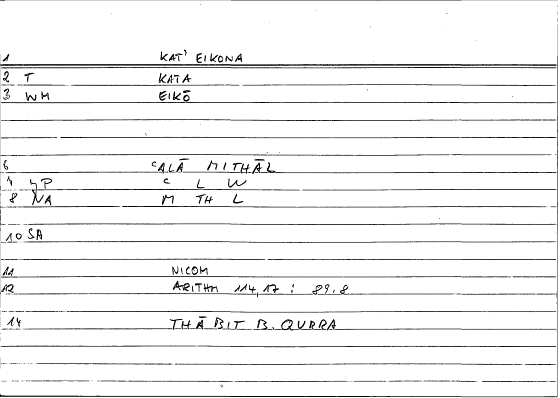 1 KAT' EIKONA
2 T KATA
3 WM EIKŌ
6 ʿALĀ MITHĀL
4 ʿ L W
8 NA M TH L
10 SA
11 NICOM
12 ARITHM 114,17 : 89.8
14 THĀBIT B. QURRA